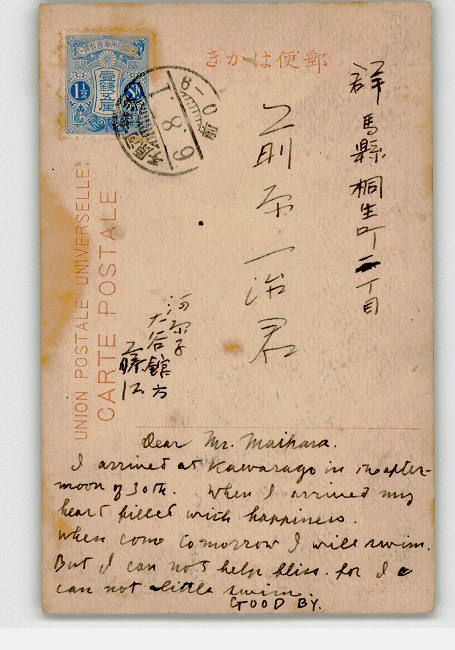 郵便はかき
壹錢五厘
1½
UNION POSTALE UNIVERSELLE.
CARTE POSTALE
群馬縣桐生町二丁目
前原一治君
河原子
大谷館方
Dear Mr. Maihara.
I arrived at Kawarago in the after-
moon of 30th. When I arrived my
heart filled with happiness.
When come tomorrow I will swim.
But I can not help bliss. for I c
can not little swim.
GOOD BY.